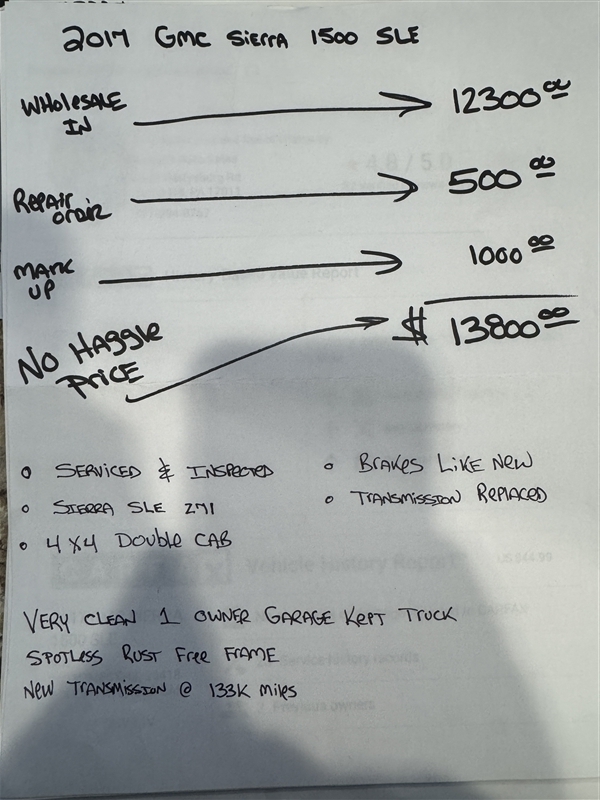 2017 GMC SIERRA 1500 SLE
WHOLESALE IN 12300.00
REPAIR ORDER 500.00
MARK UP 1000.00
NO HAGGLE PRICE $ 13800.00
SERVICED & INSPECTED
SIERRA SLE Z71
4X4 DOUBLE CAB
BRAKES LIKE NEW
TRANSMISSION REPLACED
VERY CLEAN 1 OWNER GARAGE KEPT TRUCK
SPOTLESS RUST FREE FRAME
NEW TRANSMISSION @ 133K MILES
+4.8 / 5.0
Vehicle History Report
US $44.99
Service history records
Previous owners